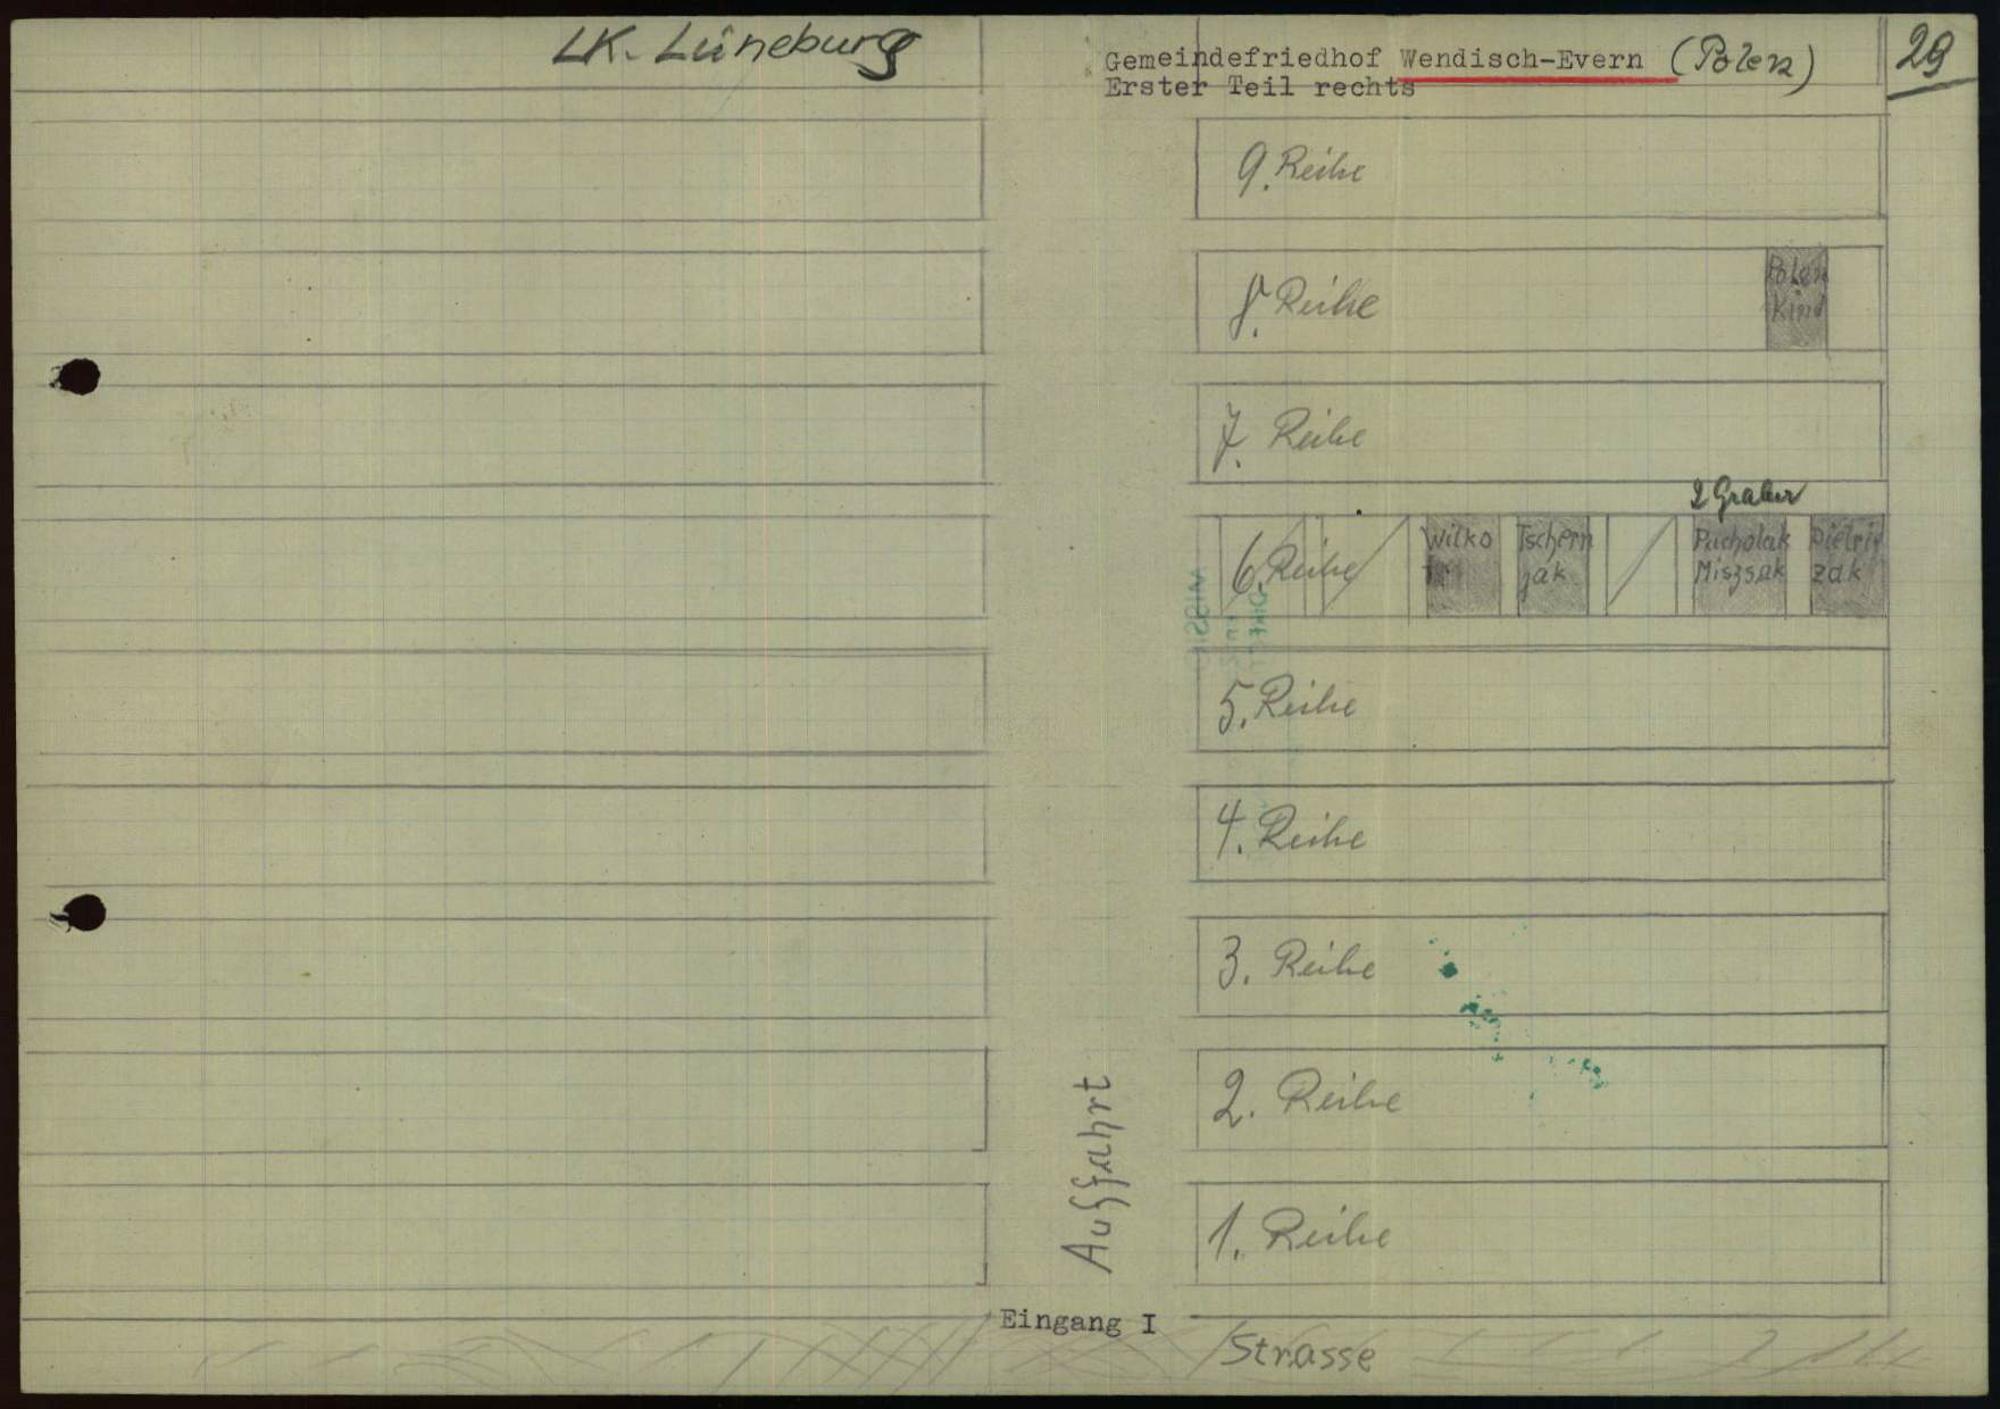 LK. Lüneburg
Gemeindefriedhof Wendisch-Evern (Polen)
Erster Teil rechts
29
9. Reihe
8. Reihe
Polen
Kind
7. Reihe
2 Gräber
6. Reihe
Wilko
Tschern
jak
Pucholak
Miszsak
Pietri
zak
5. Reihe
4. Reihe
3. Reihe
2. Reihe
1. Reihe
Auffahrt
Eingang I
Strasse